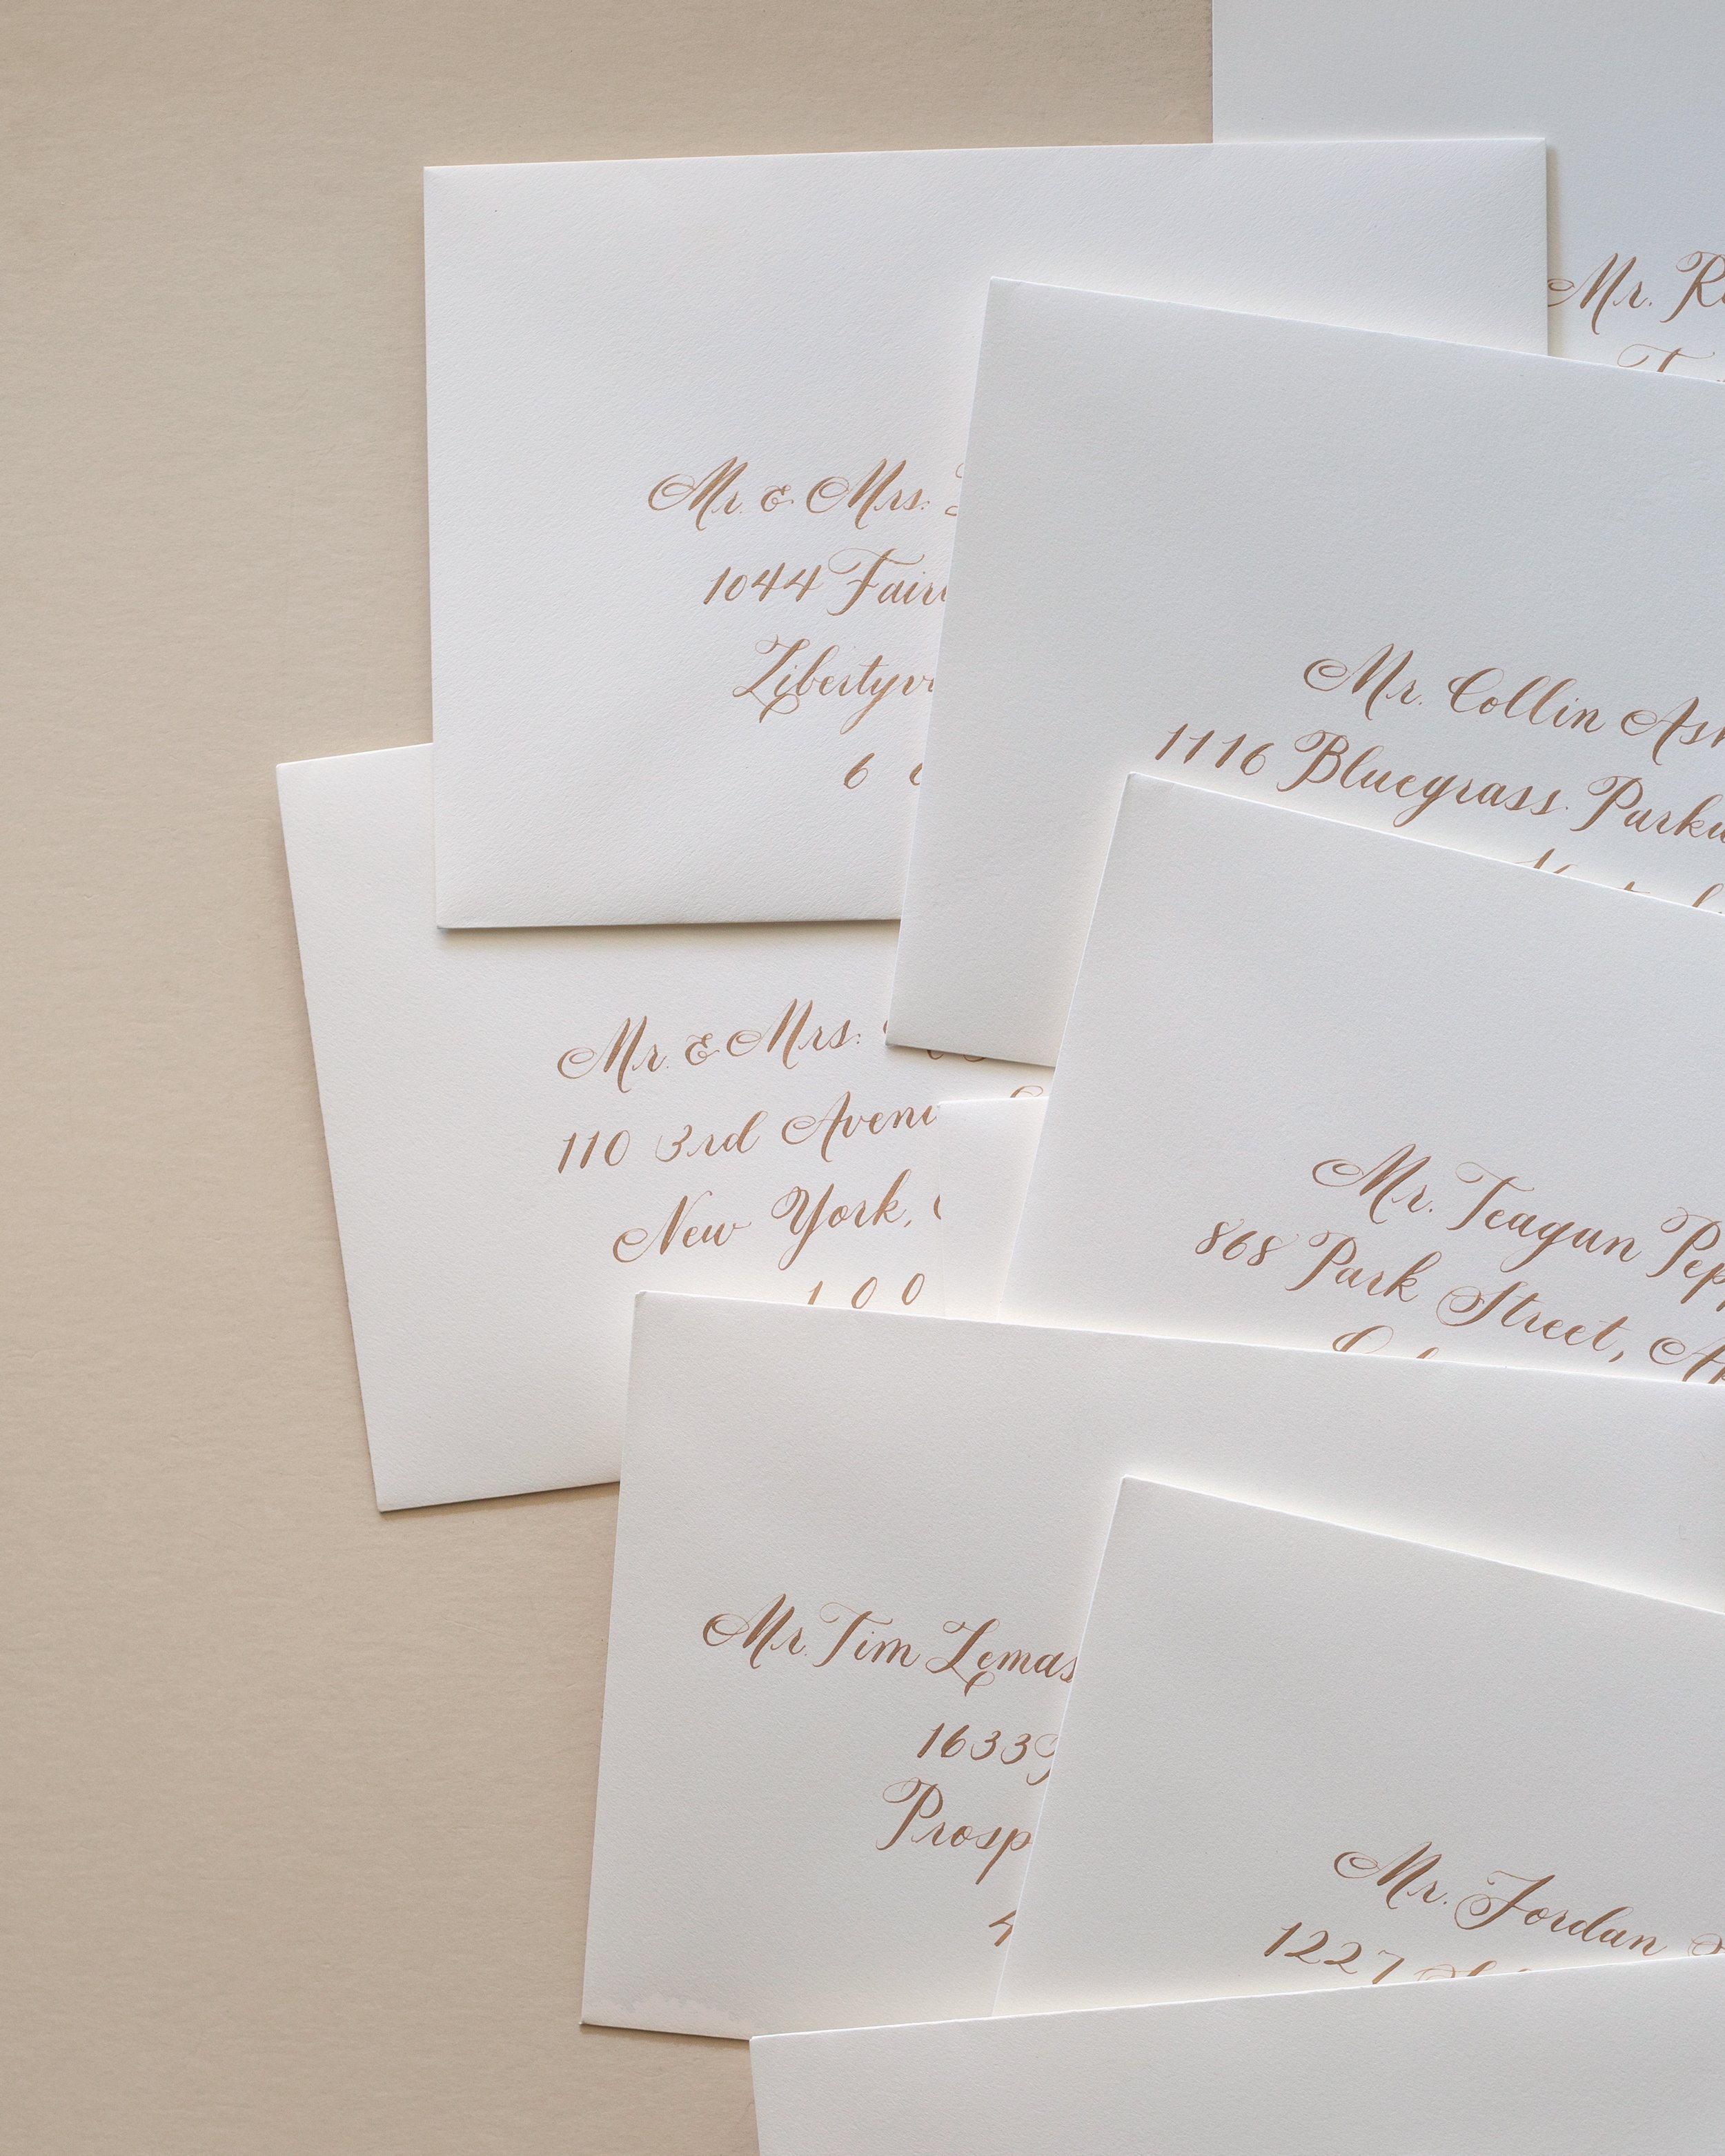 Mr. R
Mr. & Mrs.
1044 Fair
Libertyv
6
Mr. Collin Ash
1116 Bluegrass Parkw
Mr. & Mrs.
110 3rd Avenu
New York,
100
Mr. Teagan Pepp
868 Park Street, Ap
Mr. Tim Lemas
16339
Prosp
4
Mr. Jordan
1227